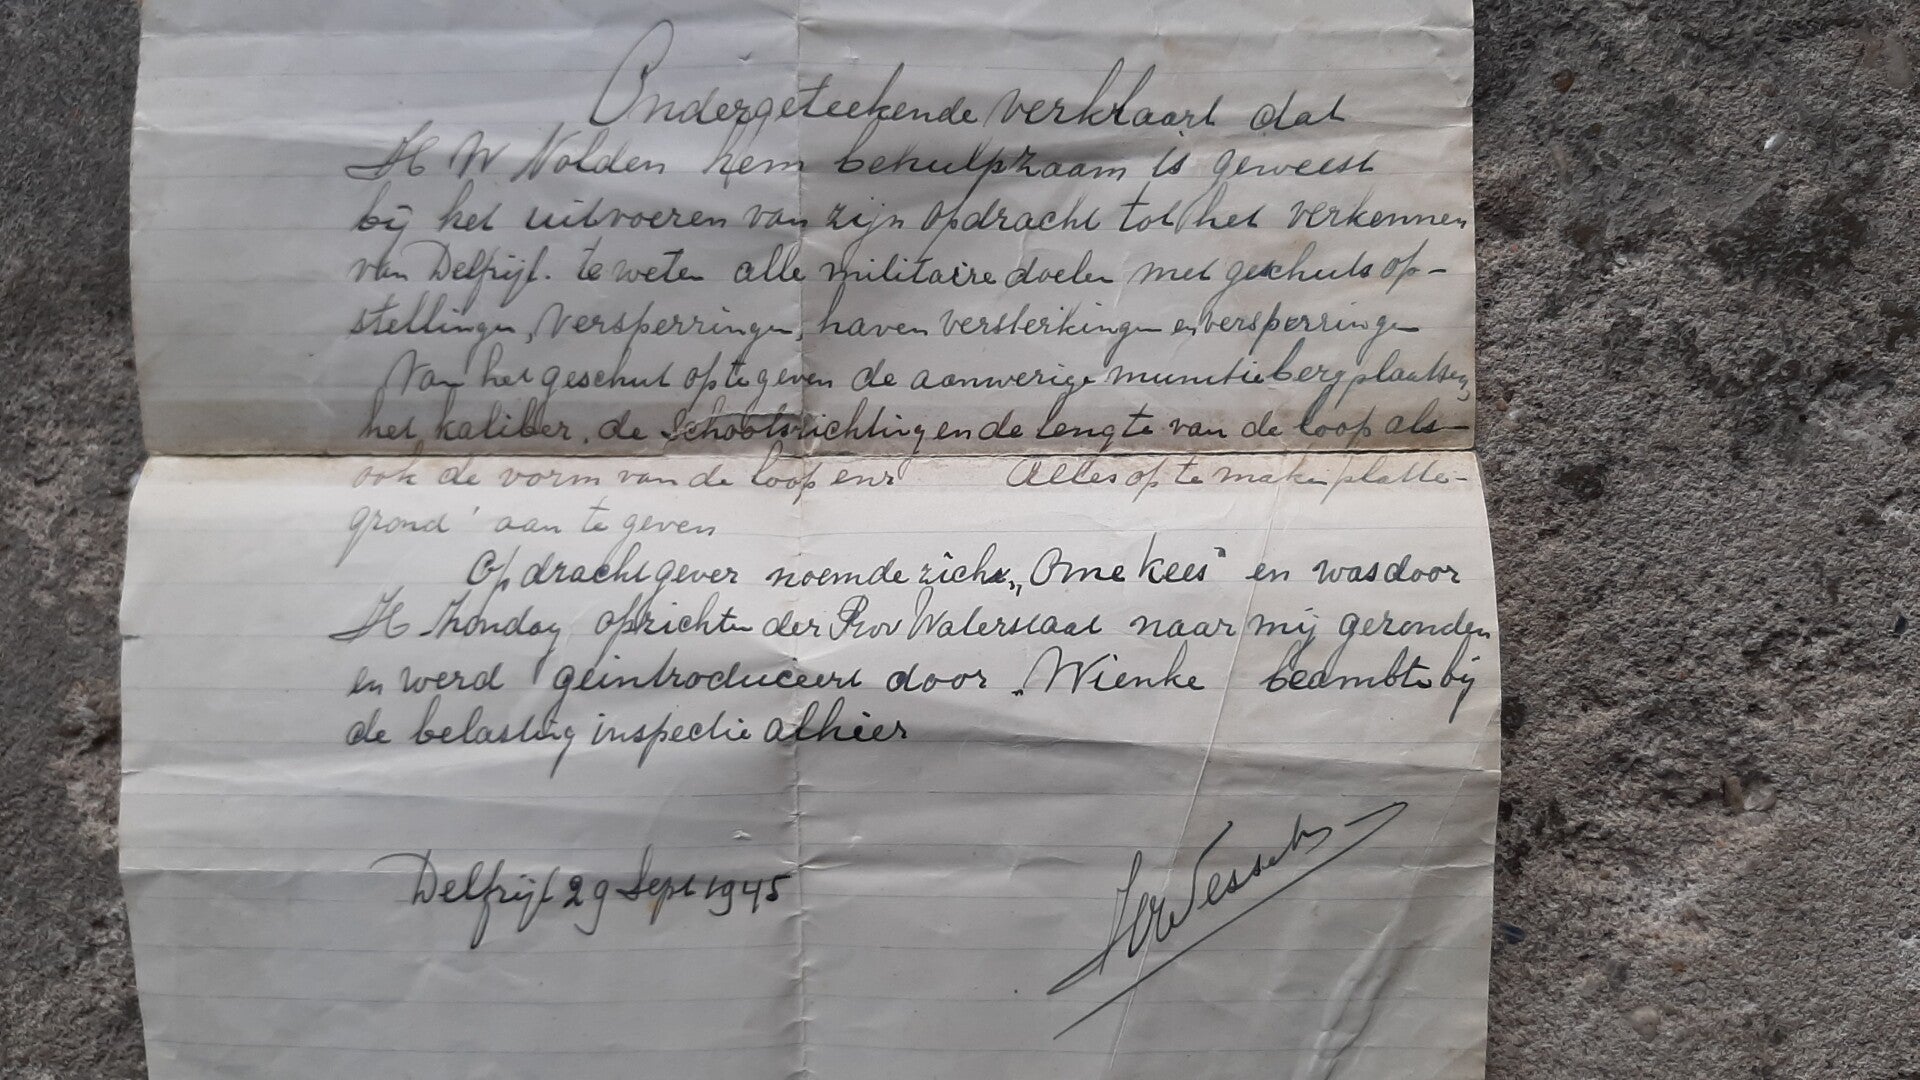 Ondergeteekende verklaart dat
H W Nolden hem behulpzaam is geweest
bij het uitvoeren van zijn opdracht tot het verkennen
van Delfzijl. te weten alle militaire doelen met geschuts op-
stellingen, versperringen, haven versterkingen en versperringen
Van het geschut op te geven de aanwezige munitiebergplaatsen,
het kaliber, de schootsrichting en de lengte van de loop als-
ook de vorm van de loop enz Alles op te maken platte-
grond aan te geven
Opdrachtgever noemde zich „Ome Kees" en was door
H opzichter der Prov Waterstaat naar mij gezonden
en werd geintroduceert door Wienke beambte bij
de belasting inspectie alhier
Delfzijl 29 Sept 1945
Wessels